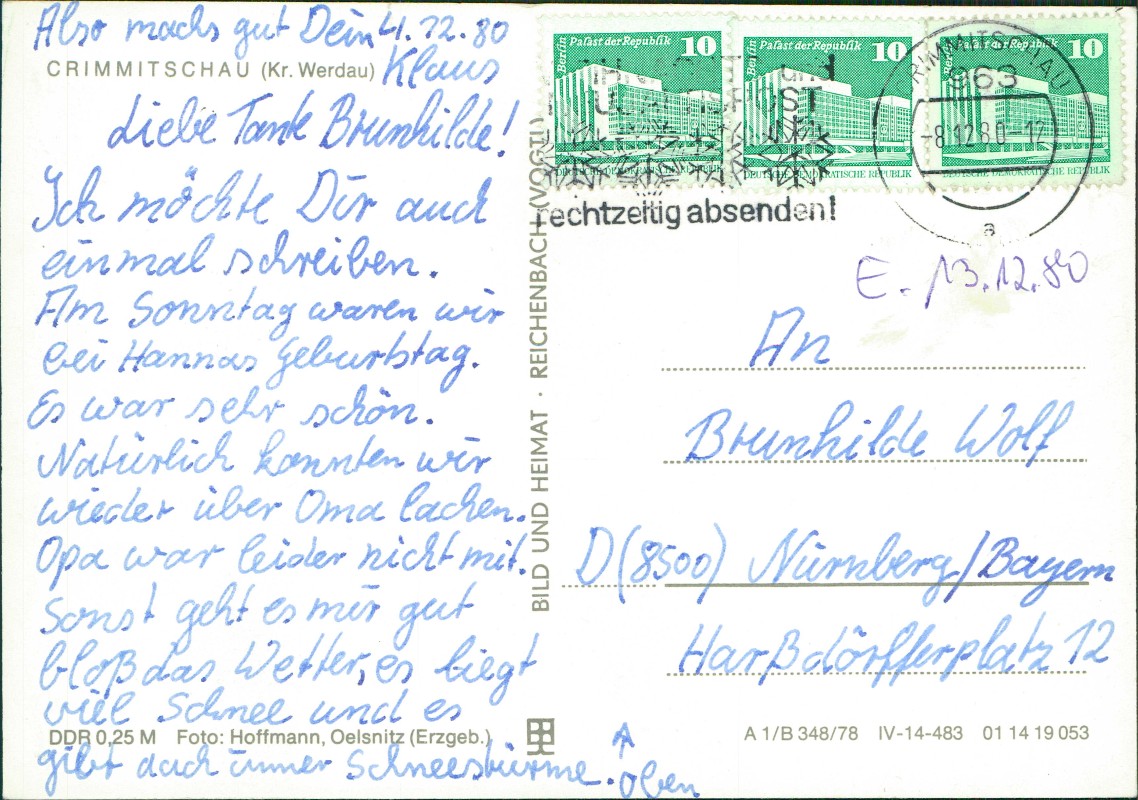 Also machs gut Dein 4.12.80
CRIMMITSCHAU (Kr. Werdau) Klaus
Liebe Tante Brunhilde!
Ich möchte Dir auch
einmal schreiben.
Am Sonntag waren wir
bei Hannas Geburtstag.
Es war sehr schön.
Natürlich konnten wir
wieder über Oma lachen.
Opa war leider nicht mit.
Sonst geht es mir gut
bloß das Wetter, es liegt
viel Schnee und es
DDR 0,25 M Foto: Hoffmann, Oelsnitz (Erzgeb.)
gibt auch immer Schneestürme.
oben
BILD UND HEIMAT · REICHENBACH (VOGTL)
Berlin Palast der Republik 10
DEUTSCHE DEMOKRATISCHE REPUBLIK
Berlin Palast der Republik 10
DEUTSCHE DEMOKRATISCHE REPUBLIK
Berlin Palast der Republik 10
DEUTSCHE DEMOKRATISCHE REPUBLIK
und
rechtzeitig absenden!
CRIMMITSCHAU
963
-8.12.80-12
a
E. 13.12.80
An
Brunhilde Wolf
D (8500) Nürnberg/Bayern
Harßdörfferplatz 12
A 1/B 348/78 IV-14-483 01 14 19 053